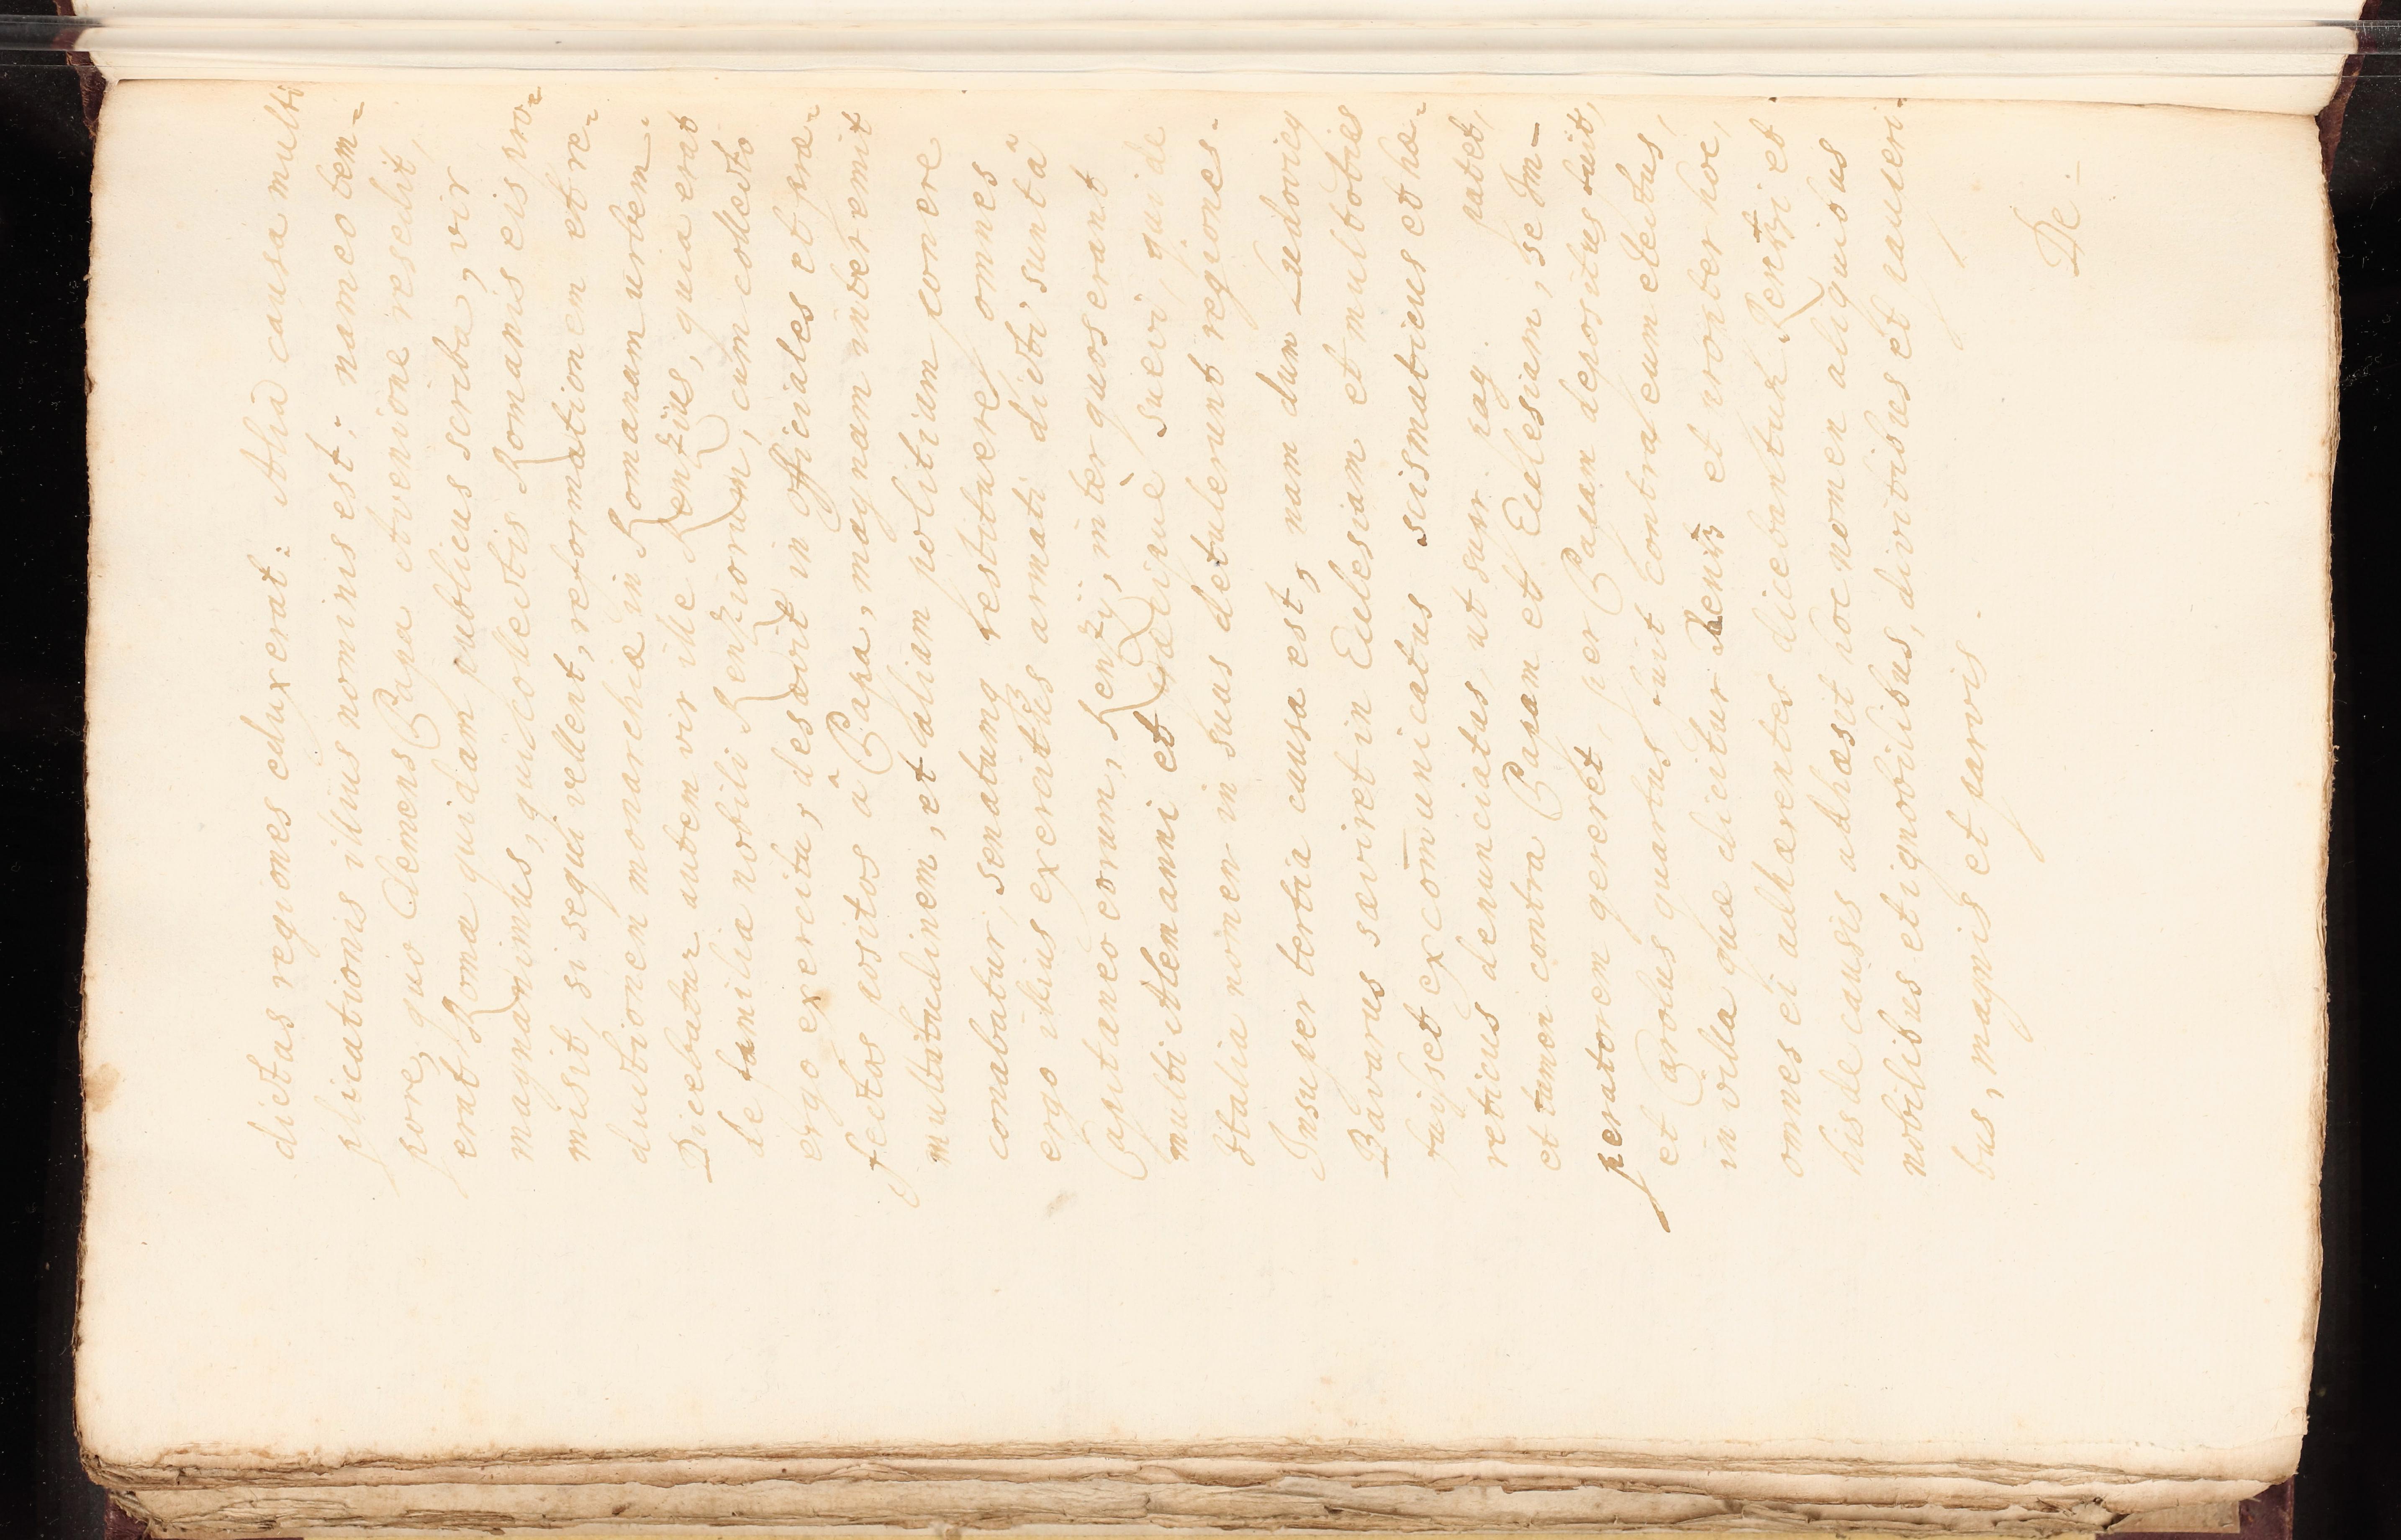 dictas regiones eduxerat: Alia causa multi
plicationis illius nominis est: nam eo tem-
pore, quo Clemens Papa Avenione resedit,
erat Romæ quidam publicus scriba, vir
magnanimus, qui collectis Romanis eis pro-
misit, si sequi vellent, reformationem et re-
ductionem monarchiæ in Romanam urbem.
Dicebatur autem vir ille Renzius, quia erat
de familia nobili Renziorum, cum collecto
ergo exercitu, desævit in officiales et præ-
fectos positos â Papa, magnam interemit
multitudinem, et aliam politiam ponere
conabatur, senatumq restituere, omnes
ergo illius exercitus armati dicti sunt â
Capitaneo eorum, Renzij, inter quos erant
multi Alemanni et præcipuè suevi, qui de
Italia nomen in suas detulerunt regiones.
Insuper tertia causa est, nam dum Ludovicq
Bavarus sæviret in Ecclesiam et multoties
fuisset excom̄unicatus scismaticus et hæ-
reticus denunciatus, ut supr pag patet,
et tamen contra Papam et Ecclesiam, se Im-
peratorem gereret per Papam depositus fuit,
et Carolus quartus fuit contra eum electus,
in villa quæ dicitur Rents et propter hoc,
omnes ei adhærentes dicebantur Rentzi et
his de causis adhæsit hoc nomen aliquibus
nobilibus et ignobilibus, divitibus et pauperi-
bus, magnis et parvis.
De-